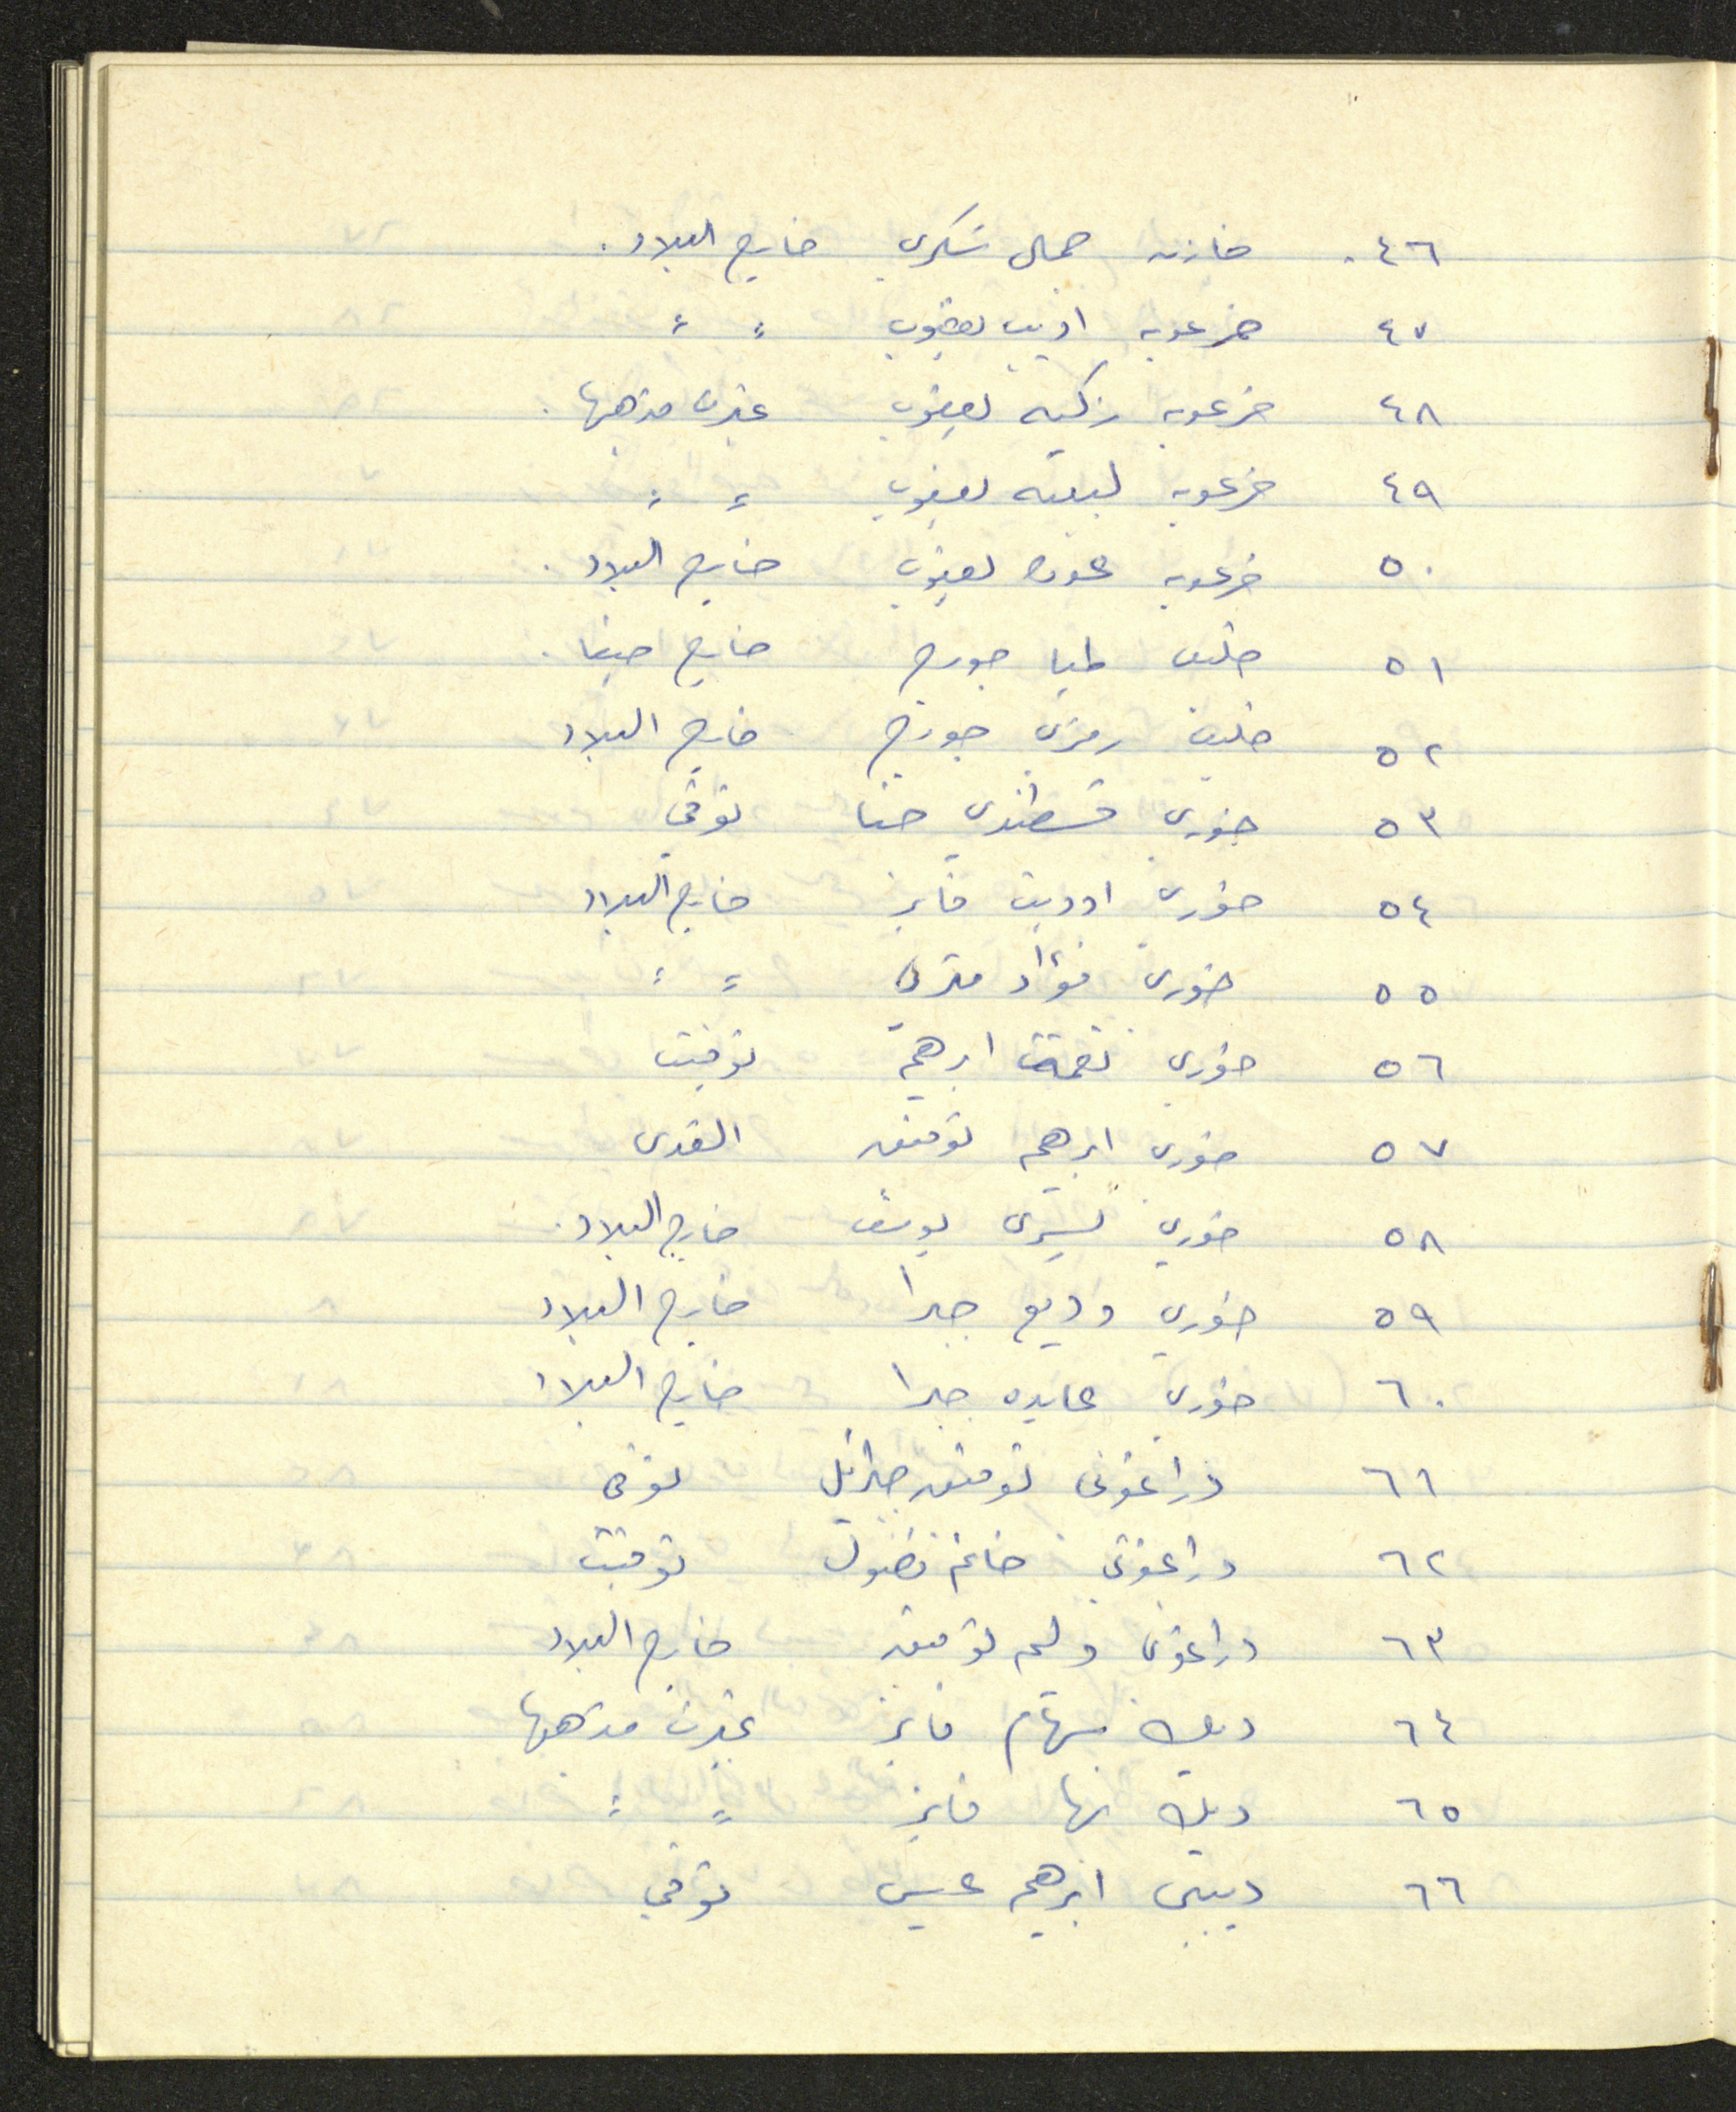 ٤٦. خازن جمال شكري خارج البلاد.
٤٧ خرعوبه اديب يعقوب " "
٤٨ خرعوبه زكيه يعقوب غيرت مذهبها.
٤٩ خرعوبه لبيبه يعقوب " "
٥٠ خرعوبه عوده يعقوب خارج البلاد.
٥١ خليف طيا جورج خارج حيفا.
٥٢ خليف رمزي جورج خارج البلاد
٥٣ خوري قسطندي حنا توفي
٥٤ خوري اوديت فايز خارج البلاد
٥٥ خوري فؤاد متري " "
٥٦ خوري نعمة ابرهيم توفيت
٥٧ خوري ابرهيم توفيق القدس
٥٨ خوري يسرى يوسف خارج البلاد.
٥٩ خوري وديع جبرا خارج البلاد
٦٠ خوري عايده جبرا خارج البلاد
٦١ دراغوني توفيق جبرائيل توفي
٦٢ دراغوني خانم فضول توفيت
٦٣ دراغوني وليم توفيق خارج البلاد
٦٤ ديك سهام فايز غيرت مذهبها
٦٥ ديك نها فايز " "
٦٦ ديبي ابرهيم عيسى توفي